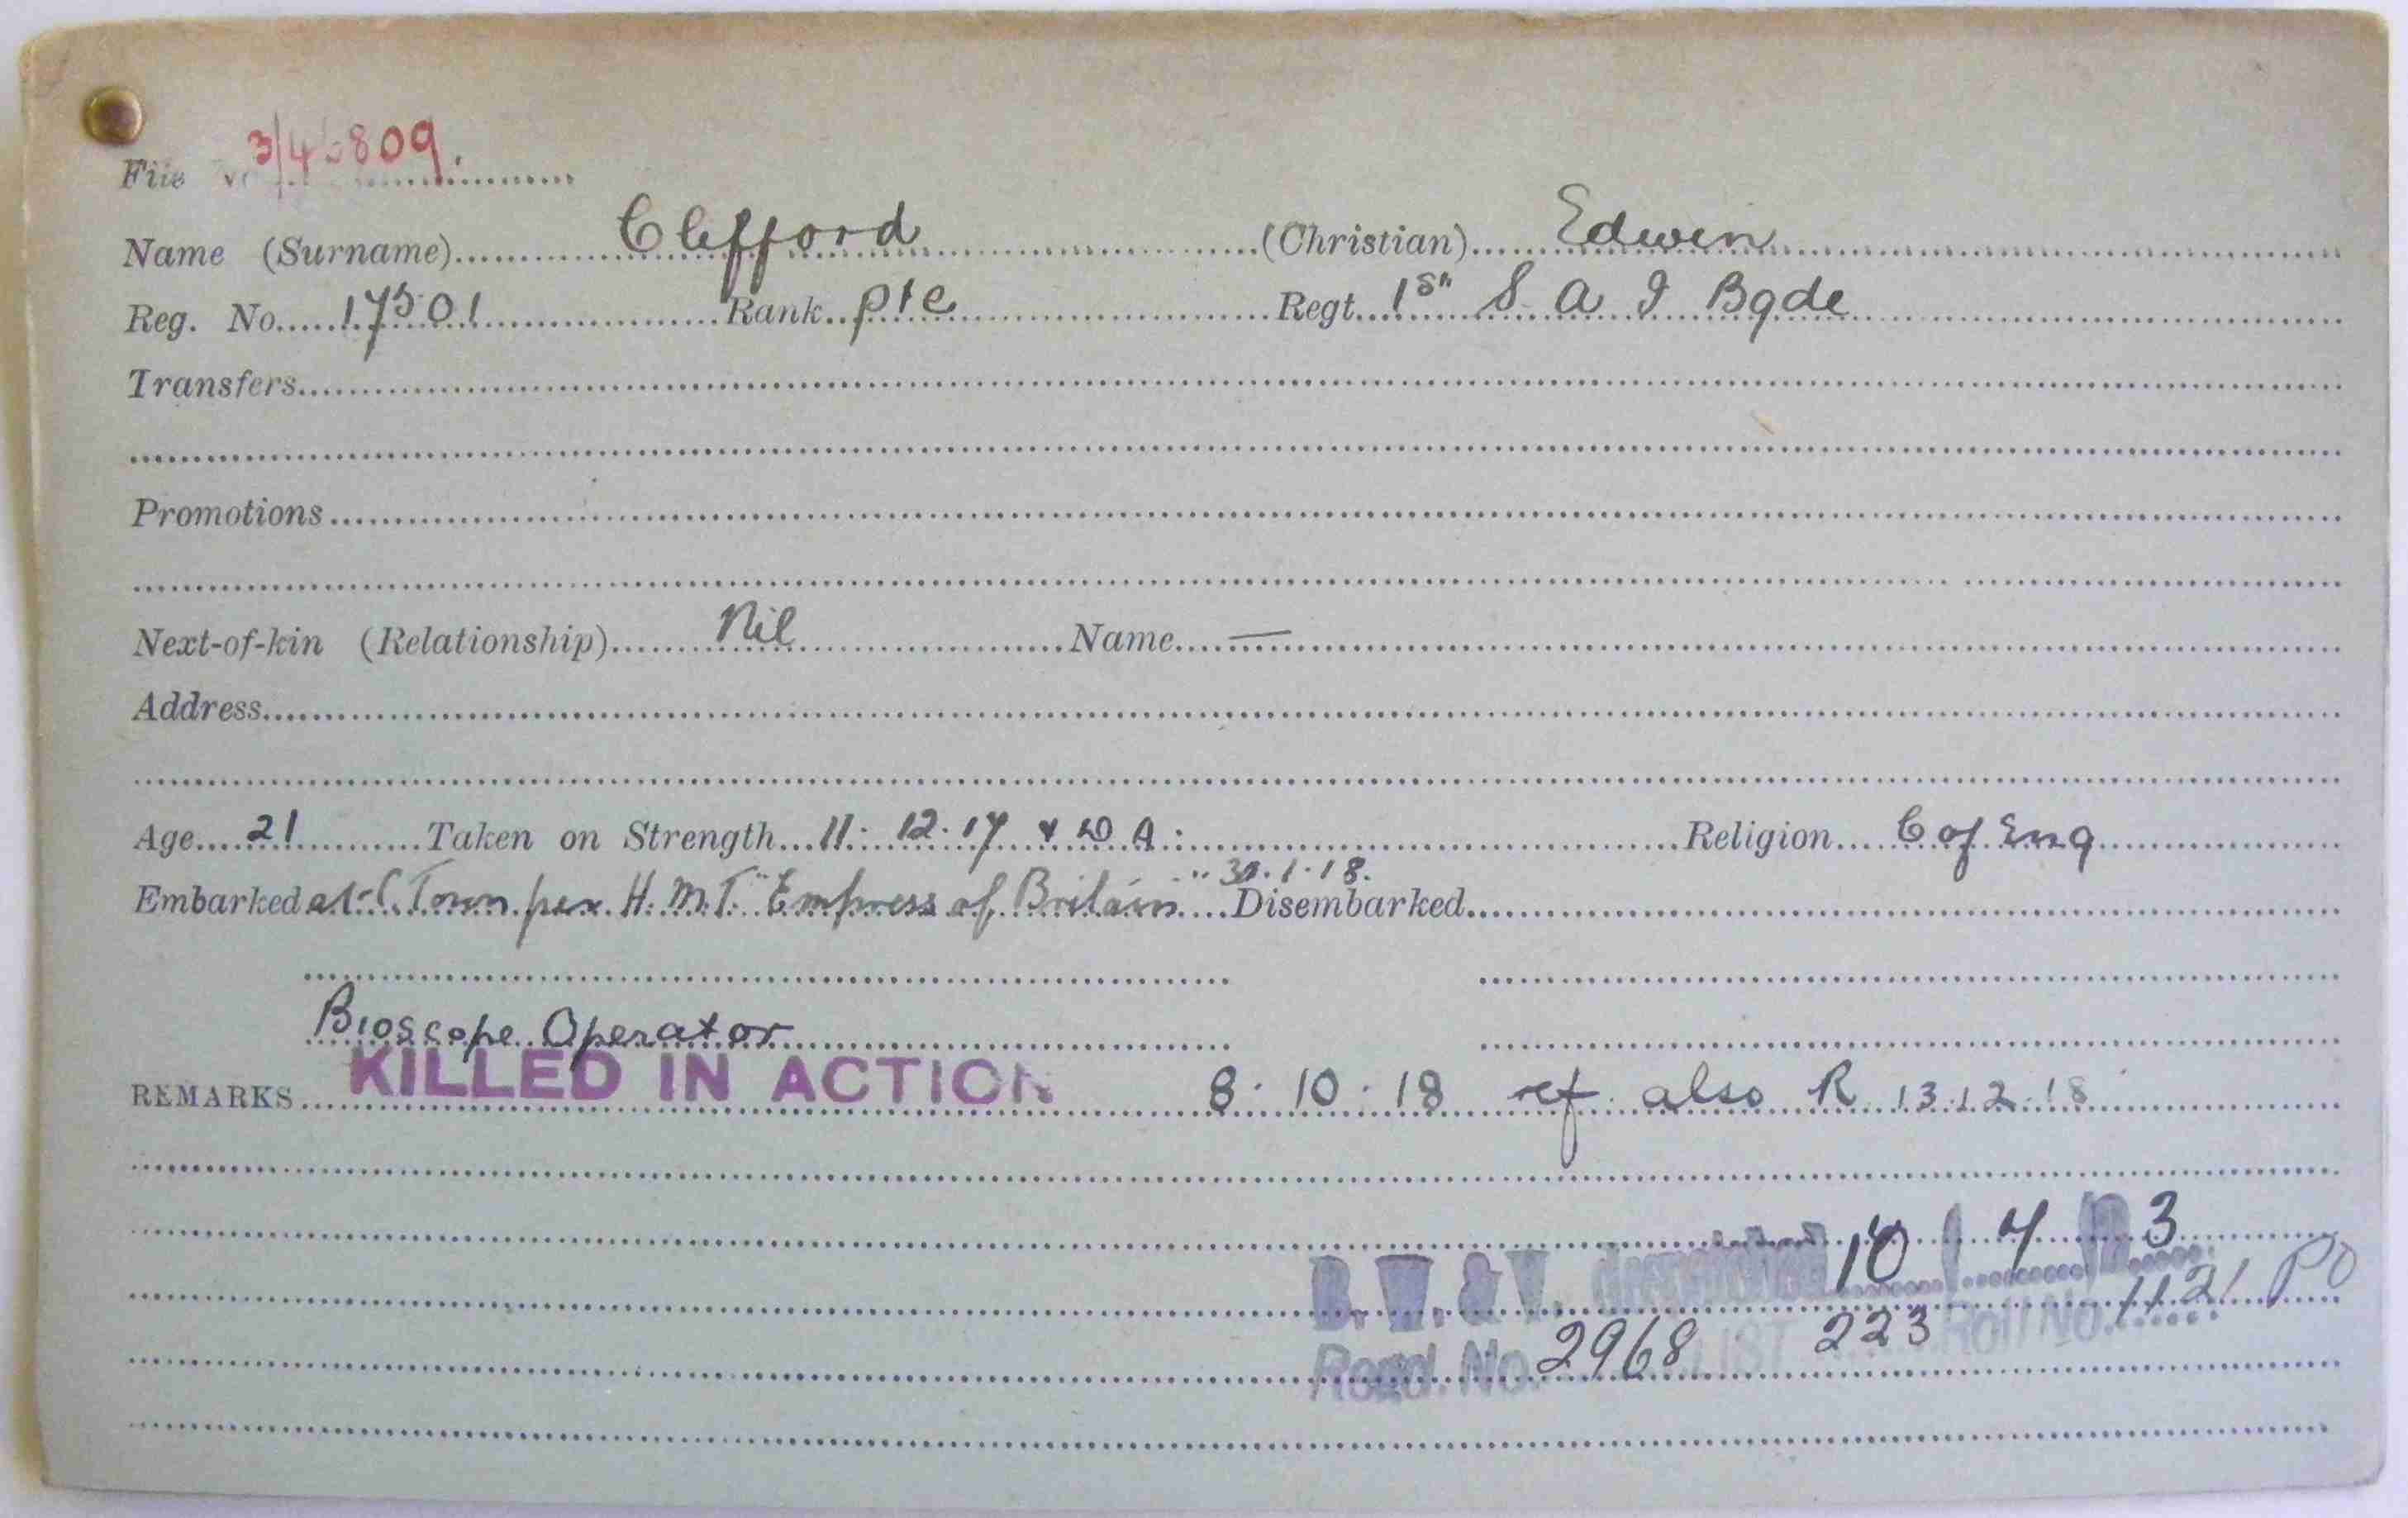 File No 3/46809.
Name (Surname) Clifford (Christian) Edwin
Reg. No. 17501 Rank Pte Regt. 1st S A I Bgde
Transfers
Promotions
Next-of-kin (Relationship) Nil Name —
Address
Age 21 Taken on Strength 11. 12. 17 Religion C of Eng
Embarked at C. Town per H. M. T. "Empress of Britain" .1.18. Disembarked
Bioscope Operator
REMARKS KILLED IN ACTION 8. 10. 18 ref also R 13.12.18
B.W. & V. 10 / 4 / 3
Regd. No. 2968 LIST 223 Roll No. 1121 PO